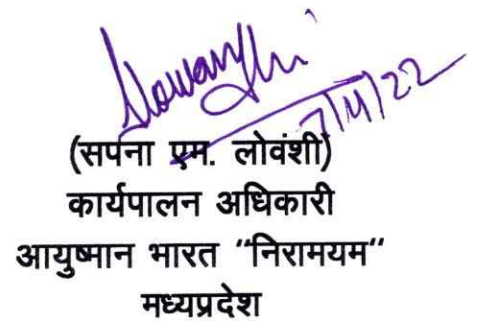 7/4/22
(सपना एम. लोवंशी)
कार्यपालन अधिकारी
आयुष्मान भारत “निरामयम”
मध्यप्रदेश